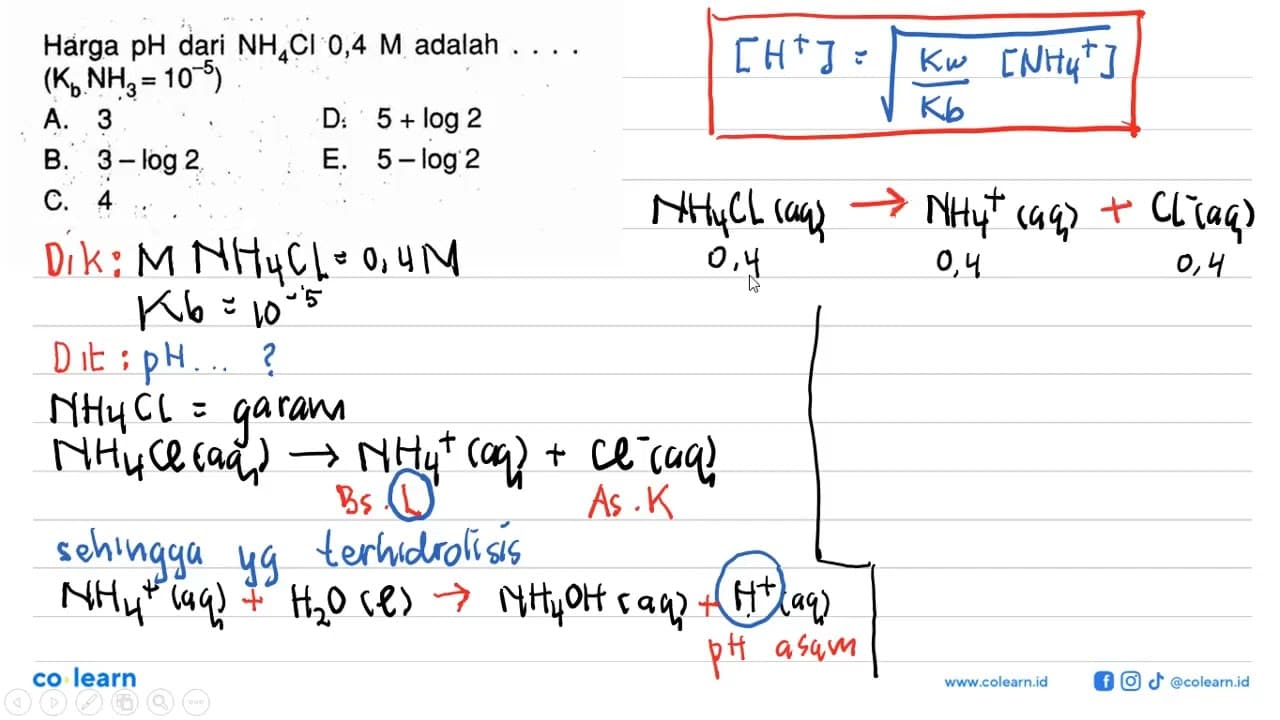 Harga pH dari NH₄Cl 0,4 M adalah . . . .
(K_b NH₃ = 10⁻⁵)
A. 3
B. 3 – log 2
C. 4
D. 5 + log 2
E. 5 – log 2
Dik : M NH₄Cl = 0,4 M
Kb = 10⁻⁵
Dit : pH ... ?
NH₄Cl = garam
NH₄Cl (aq) → NH₄⁺ (aq) + Cl⁻ (aq)
Bs . L As . K
sehingga yg terhidrolisis
NH₄⁺ (aq) + H₂O (l) → NH₄OH (aq) + H⁺ (aq)
pH asam
[H⁺] = √(Kw/Kb [NH₄⁺])
NH₄Cl (aq) → NH₄⁺ (aq) + Cl⁻ (aq)
0,4 0,4 0,4
co learn
www.colearn.id
@colearn.id